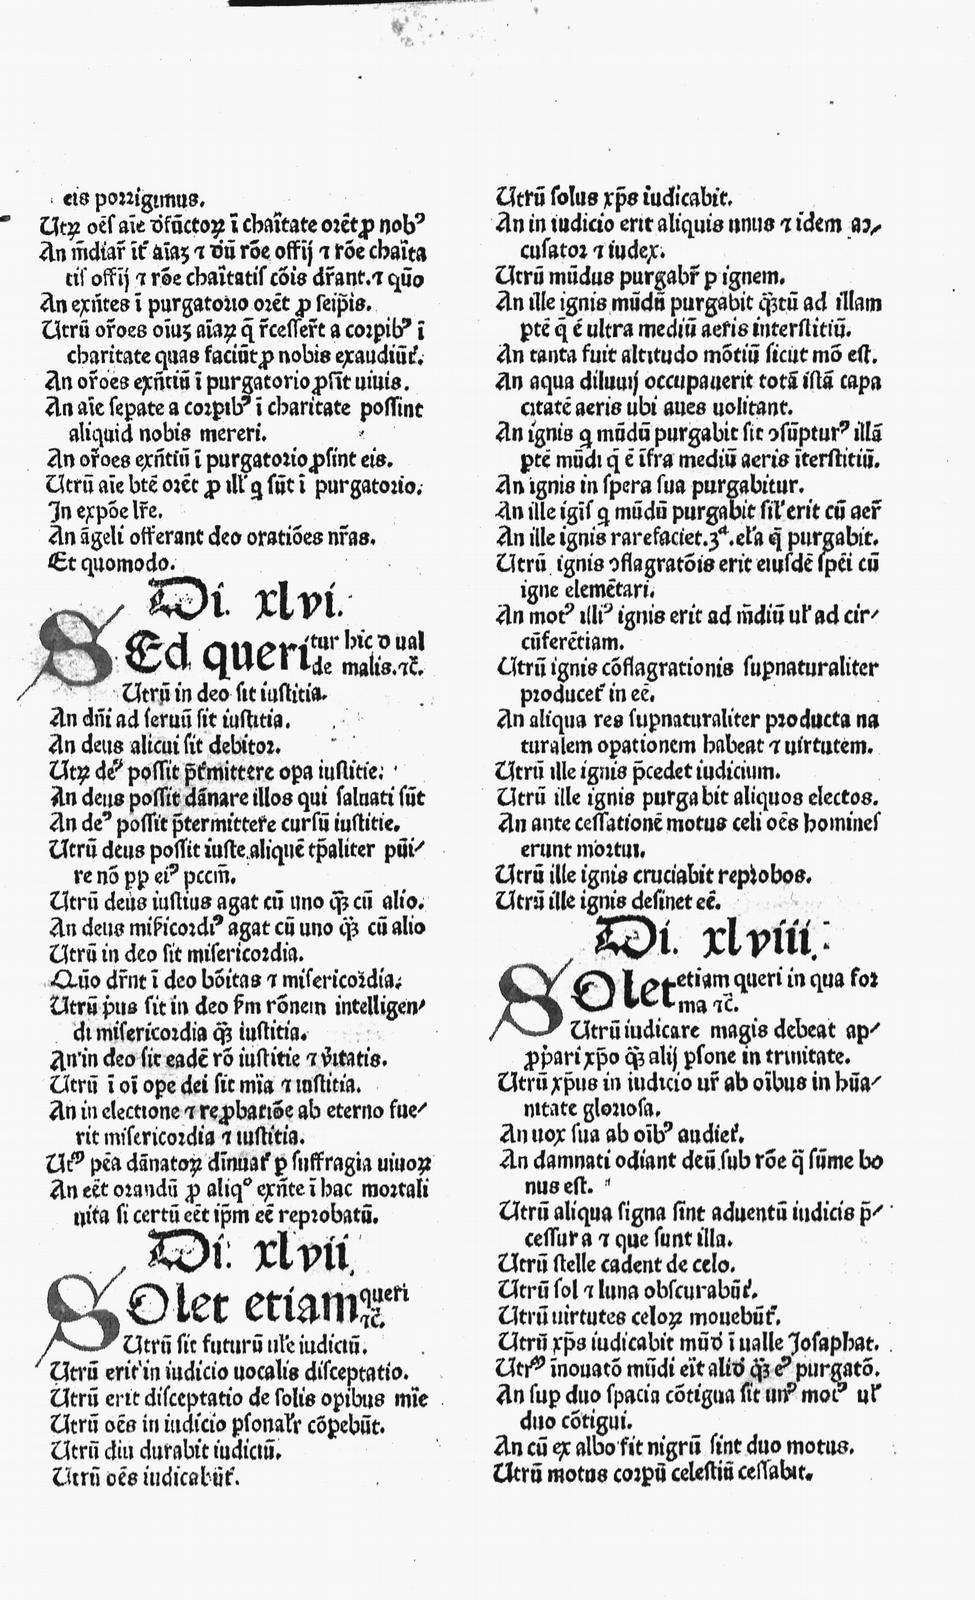 eis porrigimus.
Utrꝝ oẽs aĩe dẽfũctorꝝ ĩ charĩtate orẽt ꝓ nobꝰ
An m̃diar̃ ĩt̃ aĩaʒ ⁊ dũ rõe offĳ ⁊ rõe charĩta
tis offĳ ⁊ rõe charĩtatis cõis dr̃ant. ⁊ quõ
An exñtes ĩ purgatorio orẽt ꝓ seip̃is.
Utrũ or̃oes oiuʒ aĩaꝝ q̃ r̃cesser̃t a corpibꝰ ĩ
charitate quas faciũt ꝓ nobis exaudiũt̃.
An or̃oes exñtiũ ĩ purgatorio ꝓsĩt uiuis.
An aĩe sepate a corpibꝰ ĩ charitate possint
aliquid nobis mereri.
An or̃oes exñtiũ ĩ purgatorio ꝓsint eis.
Utrũ aĩe btẽ orẽt ꝓ ill' q sũt ĩ purgatorio.
In expõe lr̃e.
An ãgeli offerant deo oratiões nr̃as.
Et quomodo.
Di. xlvi.
Sed queritur hic d ual
de malis. ⁊c̃.
Utrũ in deo sit iustitia.
An dñi ad seruũ sit iustitia.
An deus alicui sit debitor.
Utꝝ deꝰ possit p̃t̃mittere opa iustitie.
An deus possit dãnare illos qui saluati sũt
An deꝰ possit p̃termittere cursũ iustitie.
Utrũ deus possit iuste aliquẽ tp̃aliter pũi⸗
re nõ ꝓp eiꝰ pccm̃.
Utrũ deus iustius agat cũ uno q̃ʒ cũ alio.
An deus mis̃icordiꝰ agat cũ uno q̃ʒ cũ alio
Utrũ in deo sit misericordia.
Quõ dr̃nt ĩ deo bõitas ⁊ misericordia.
Utrũ p̃us sit in deo s̃m rõnem intelligen⸗
di misericordia q̃ʒ iustitia.
An in deo sit eadẽ rõ iustitie ⁊ ṽitatis.
Utrũ ĩ oĩ ope dei sit mĩa ⁊ iustitia.
An in electione ⁊ reꝓbatiõe ab eterno fue⸗
rit misericordia ⁊ iustitia.
Utꝝ pẽa dãnatoꝝ dĩnuat̃ ꝑ suffragia uiuoꝝ
An eẽt orandũ ꝓ aliqº exñte ĩ hac mortali
uita si certũ eẽt ip̃m eẽ reprobatũ.
Di. xlvii
Solet etiam queri
⁊c̃.
Utrũ sit futurũ ul̃e iudiciũ.
Utrũ erit in iudicio uocalis disceptatio.
Utrũ erit disceptatio de solis opibus mĩe
Utrũ oẽs in iudicio ꝑsonal'r cõpebũt.
Utrũ diu durabit iudiciũ.
Utrũ oẽs iudicabũt̃.
Utrũ solus xp̃s iudicabit.
An in iudicio erit aliquis unus ⁊ idem aↄ⸗
cusator ⁊ iudex.
Utrũ mũdus purgabr̃ ꝑ ignem.
An ille ignis mũdũ purgabit q̃ʒtũ ad illam
ptẽ q̃ ẽ ultra mediũ aeris interstitiũ.
An tanta fuit altitudo mõtiũ sicut mõ est.
An aqua diluuĳ occupauerit totã istã capa
citatẽ aeris ubi aues uolitant.
An ignis q mũdũ purgabit sit ↄsũpturꝰ illã
ptẽ mũdi q̃ ẽ ĩfra mediũ aeris ĩterstitiũ.
An ignis in spera sua purgabitur.
An ille igĩs q mũdũ purgabit sil' erit cũ aer̃
An ille ignis rarefaciet .3ª. el'a q̃ purgabit.
Utrũ ignis ↄflagratõis erit eiusdẽ spẽi cũ
igne elemẽtari.
An motꝰ illiꝰ ignis erit ad m̃diũ ul' ad cir⸗
cũferẽtiam.
Utrũ ignis cõflagrationis supnaturaliter
producet̃ in eẽ.
An aliqua res supnaturaliter producta na
turalem opationem habeat ⁊ uirtutem.
Utrũ ille ignis p̃cedet iudicium.
Utrũ ille ignis purgabit aliquos electos.
An ante cessationẽ motus celi oẽs homines
erunt mortui.
Utrũ ille ignis cruciabit reprobos.
Utrũ ille ignis desinet eẽ.
Di. xlviii.
Solet etiam queri in qua for
ma ⁊c̃.
Utrũ iudicare magis debeat ap⸗
ꝓp̃ari xp̃o q̃ʒ alĳ ꝑsone in trinitate.
Utrũ xp̃us in iudicio ur̃ ab oĩbus in hũa⸗
nitate gloriosa.
An uox sua ab oĩbꝰ audiet̃.
An damnati odiant deũ sub rõe q̃ sũme bo
nus est.
Utrũ aliqua signa sint aduentũ iudicis p̃⸗
cessura ⁊ que sunt illa.
Utrũ stelle cadent de celo.
Utrũ sol ⁊ luna obscurabũt̃.
Utrũ uirtutes celoꝝ mouebũt̃.
Utrũ xp̃s iudicabit mũd' ĩ ualle Josaphat.
Utrꝝ ĩnouatõ mũdi eĩt aliд q̃ʒ eꝰ purgatõ.
An sup duo spacia cõtigua sit unꝰ motꝰ ul'
duo cõtigui.
An cũ ex albo fit nigrũ sint duo motus.
Utrũ motus corpũ celestiũ cessabit.